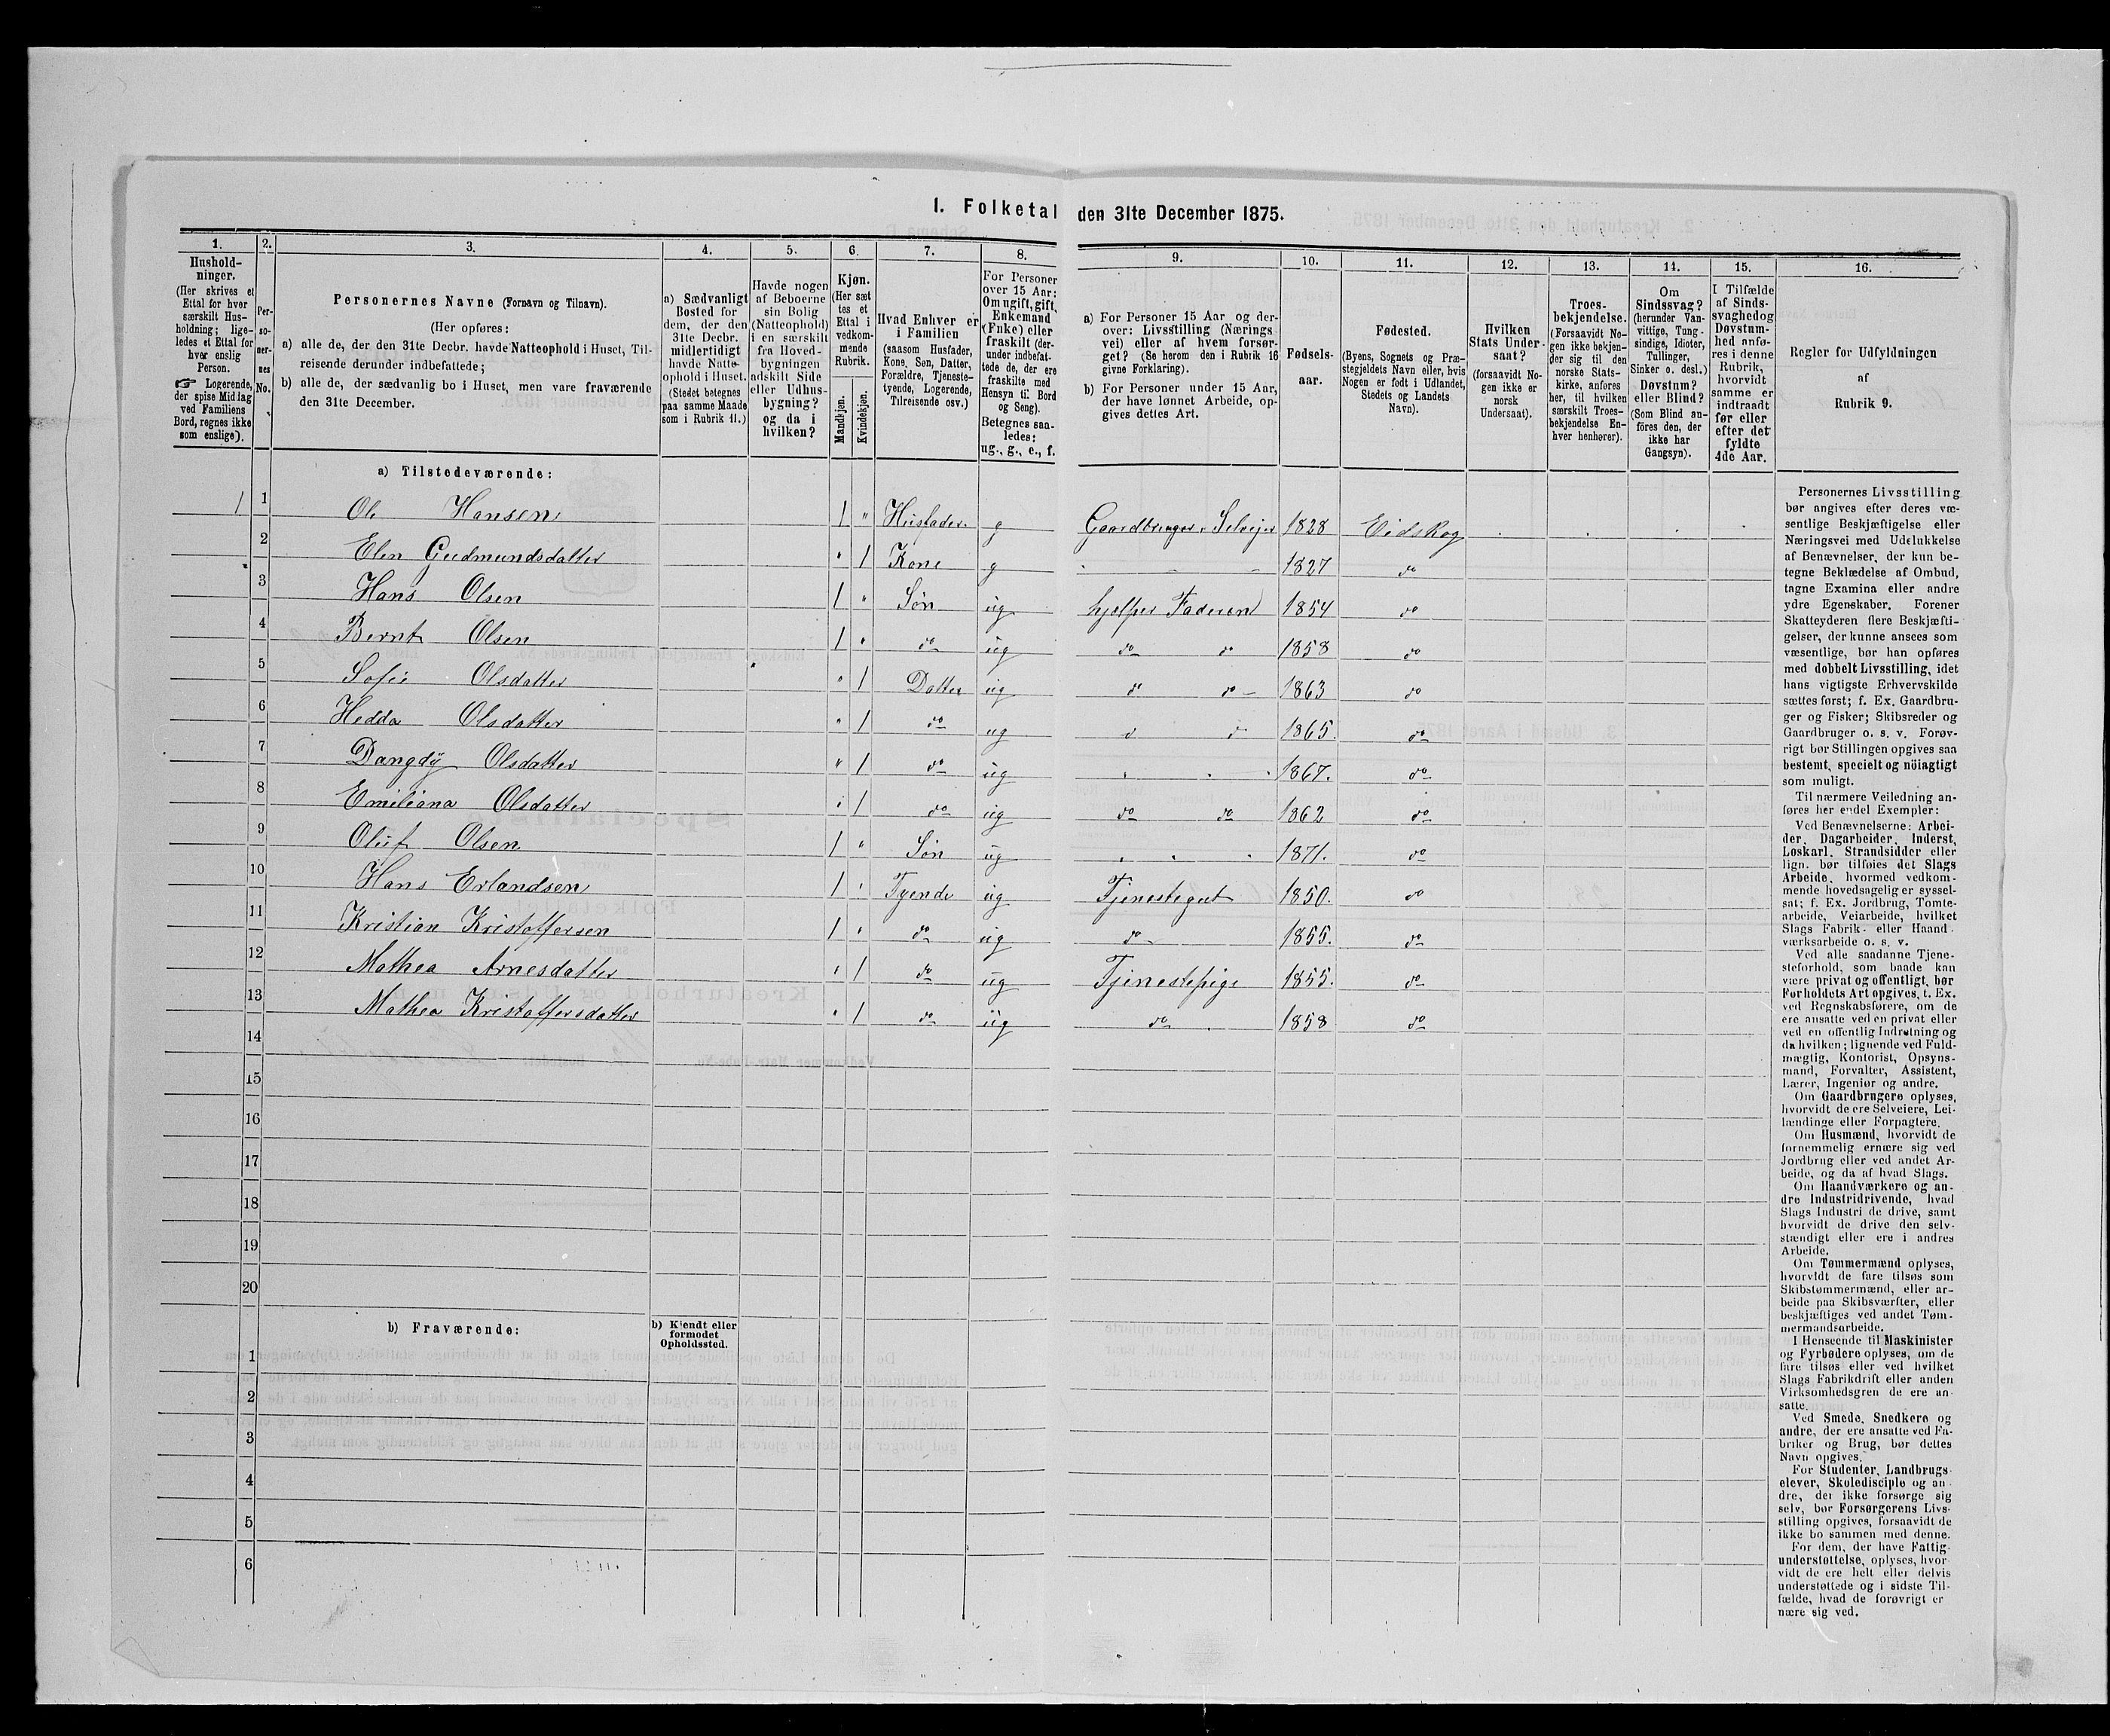 I. Folketal den 31te December 1875.
1.
2.
3.
4.
5.
6.
7.
8.
9.
10.
11.
12.
13.
14.
15.
16.
Hushold-
ninger.
(Her skrives et
Ettal for hver
særskilt Hus-
holdning; lige-
ledes et Ettal for
hver enslig
Person.
☞ Logerende,
der spise Middag
ved Familiens
Bord, regnes ikke
som enslige).
Per-
so-
ner-
nes
No.
Personernes Navne (Fornavn og Tilnavn).
(Her opføres:
a) alle de, der den 31te Decbr. havde Natteophold i Huset, Til-
reisende derunder indbefattede;
b) alle de, der sædvanlig bo i Huset, men vare fraværende
den 31te December.
a) Sædvanligt
Bosted for
dem, der den
31te Decbr.
midlertidigt
havde Natte-
ophold i Huset.
(Stedet betegnes
paa samme Maade
som i Rubrik 11.)
Havde nogen
af Beboerne
sin Bolig
(Natteophold)
i en særskilt
fra Hoved-
bygningen
adskilt Side
eller Udhus-
bygning?
og da i
hvilken?
Kjøn.
(Her sæt
tes et
Ettal i
vedkom-
mende
Rubrik.
Mandkjøn.
Kvindekjøn.
Hvad Enhver er
i Familien
(saasom Husfader,
Kone, Søn, Datter,
Forældre, Tjeneste-
tyende, Logerende,
Tilreisende osv.)
For Personer
over 15 Aar:
Om ugift, gift,
Enkemand
(Enke) eller
fraskilt (der-
under indbefat-
tede de, der ere
fraskilte med
Hensyn til Bord
og Seng).
Betegnes saa-
ledes:
ug., g., e., f.
a) For Personer 15 Aar og der-
over: Livsstilling (Nærings
vei) eller af hvem forsør-
get? (Se herom den i Rubrik 16
givne Forklaring).
b) For Personer under 15 Aar,
der have lønnet Arbeide, op-
gives dettes Art.
Fødsels-
aar.
Fødested.
(Byens, Sognets og Præ-
stegjeldets Navn eller, hvis
Nogen er født i Udlandet,
Stedets og Landets
Navn).
Hvilken
Stats Under-
saat?
(forsaavidt No-
gen ikke er
norsk
Undersaat).
Troes-
bekjendelse.
(Forsaavidt No-
gen ikke bekjen-
der sig til den
norske Stats-
kirke, anføres
her, til hvilken
særskilt Troes-
bekjendelse En-
hver henhører).
Om
Sindssvag?
(herunder Van-
vittige, Tung-
sindige, Idioter,
Tullinger,
Sinker o. desl.)
Døvstum?
eller Blind?
(Som Blind an-
föres den, der
ikke har
Gangsyn).
I Tilfælde
af Sinds-
svaghed og
Døvstum-
hed anfø-
res i denne
Rubrik,
hvorvidt
samme er
indtraadt
før eller
efter det
fyldte
4de Aar.
Regler for Udfyldningen
af
Rubrik 9.
a) Tilstedeværende:
1 1 Ole Hansen 1 " Husfader g Gaardbruger Selvejer 1828 Eidskog
2 Elen Gudmundsdatter " 1 Kone g 1827 do
3 Hans Olsen 1 " Søn ug hjelper Faderen 1854 do
4 Bernt Olsen 1 " do ug do do 1858 do
5 Sofie Olsdatter " 1 Datter ug do do 1863 do
6 Hedda Olsdatter " 1 do ug 1865. do
7 Dangdy Olsdatter " 1 do ug 1867. do
8 Emiliana Olsdatter " 1 do ug do do 1862 do
9 Oluf Olsen 1 " Søn ug 1871. do
10 Hans Erlandsen 1 " Tyende ug Tjenestegut 1850. do
11 Kristian Kristoffersen 1 " do ug do 1855. do
12 Mathea Arnesdatter " 1 do ug Tjenestepige 1855. do
13 Mathea Kristoffersdatter " 1 do ug do 1858 do
14
15
16
17
18
19
20
b) Fraværende:
b) Kjendt eller
formodet
Opholdssted.
1
2
3
4
5
6
Personernes Livsstilling
bør angives efter deres væ-
sentlige Beskjæftigelse eller
Næringsvei med Udelukkelse
af Benævnelser, der kun be-
tegne Beklædelse af Ombud,
tagne Examina eller andre
ydre Egenskaber. Forener
Skatteyderen flere Beskjæfti-
gelser, der kunne ansees som
væsentlige, bør han opføres
med dobbelt Livsstilling, idet
hans vigtigste Erhvervskilde
sættes først; f. Ex. Gaardbru-
ger og Fisker; Skibsreder og
Gaardbruger o. s. v. Forøv-
rigt bør Stillingen opgives saa
bestemt, specielt og nöiagtigt
som muligt.
Til nærmere Veiledning an-
føres her endel Exempler:
Ved Benævnelserne: Arbei-
der, Dagarbeider, Inderst,
Løskarl, Strandsidder eller
lign. bør tilføies det Slags
Arbeide, hvormed vedkom-
mende hovedsagelig er syssel-
sat; f. Ex. Jordbrug, Tomte-
arbeide, Veiarbeide, hvilket
Slags Fabrik- eller Haand-
værksarbeide o. s. v.
Ved alle saadanne Tjene-
steforhold, som baade kan
være privat og offentligt, bør
Forholdets Art opgives, t. Ex.
ved Regnskabsførere, om de
ere ansatte ved en privat eller
ved en offentlig Indretning og
da hvilken; lignende ved Fuld-
mægtig, Kontorist, Opsyns-
mand, Forvalter, Assistent,
Lærer, Ingeniør og andre.
Om Gaardbrugere oplyses,
hvorvidt de ere Selveiere, Lei-
lændinge eller Forpagtere.
Om Husmænd, hvorvidt de
fornemmelig ernære sig ved
Jordbrug eller ved andet Ar-
beide, og da af hvad Slags.
Om Haandværkere og an-
dre Industridrivende, hvad
Slags Industri de drive, samt
hvorvidt de drive den selv-
stændigt eller ere i andres
Arbeide.
Om Tømmermænd oplyses,
hvorvidt de fare tilsøs som
Skibstømmermænd, eller ar-
beide paa Skibsværfter, eller
beskjæftiges ved andet Tøm-
mermandsarbeide.
I Henseende til Maskinister
og Fyrbødere oplyses, om de
fare tilsøs eller ved hvilket
Slags Fabrikdrift eller anden
Virksomhedsgren de ere an-
satte.
Ved Smede, Snedkere og
andre, der ere ansatte ved Fa-
briker og Brug, bør dettes
Navn opgives.
For Studenter, Landbrugs-
elever, Skoledisciple og an-
dre, der ikke forsørge sig
selv, bør Forsørgerens Livs-
stilling opgives, forsaavidt de
ikke bo sammen med denne.
For dem, der have Fattig-
understøttelse, oplyses, hvor-
vidt de ere helt eller delvis
understøttede og i sidste Til-
fælde, hvad de forøvrigt er
nære sig ved.